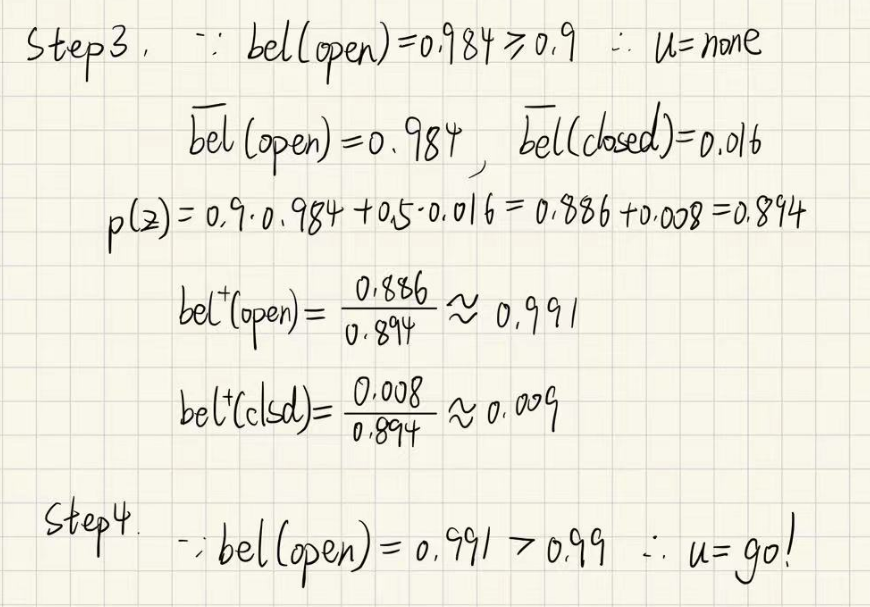 Step3. ∵ bel(open)=0.984⩾0.9 ∴ u=none
b̅e̅l̅(open)=0.984, b̅e̅l̅(closed)=0.016
p(z)=0.9·0.984+0.5·0.016=0.886+0.008=0.894
bel⁺(open)= 0.886/0.894 ≈ 0.991
bel⁺(clsd)= 0.008/0.894 ≈ 0.009
Step4. ∵ bel(open)=0.991 > 0.99 ∴ u=go!